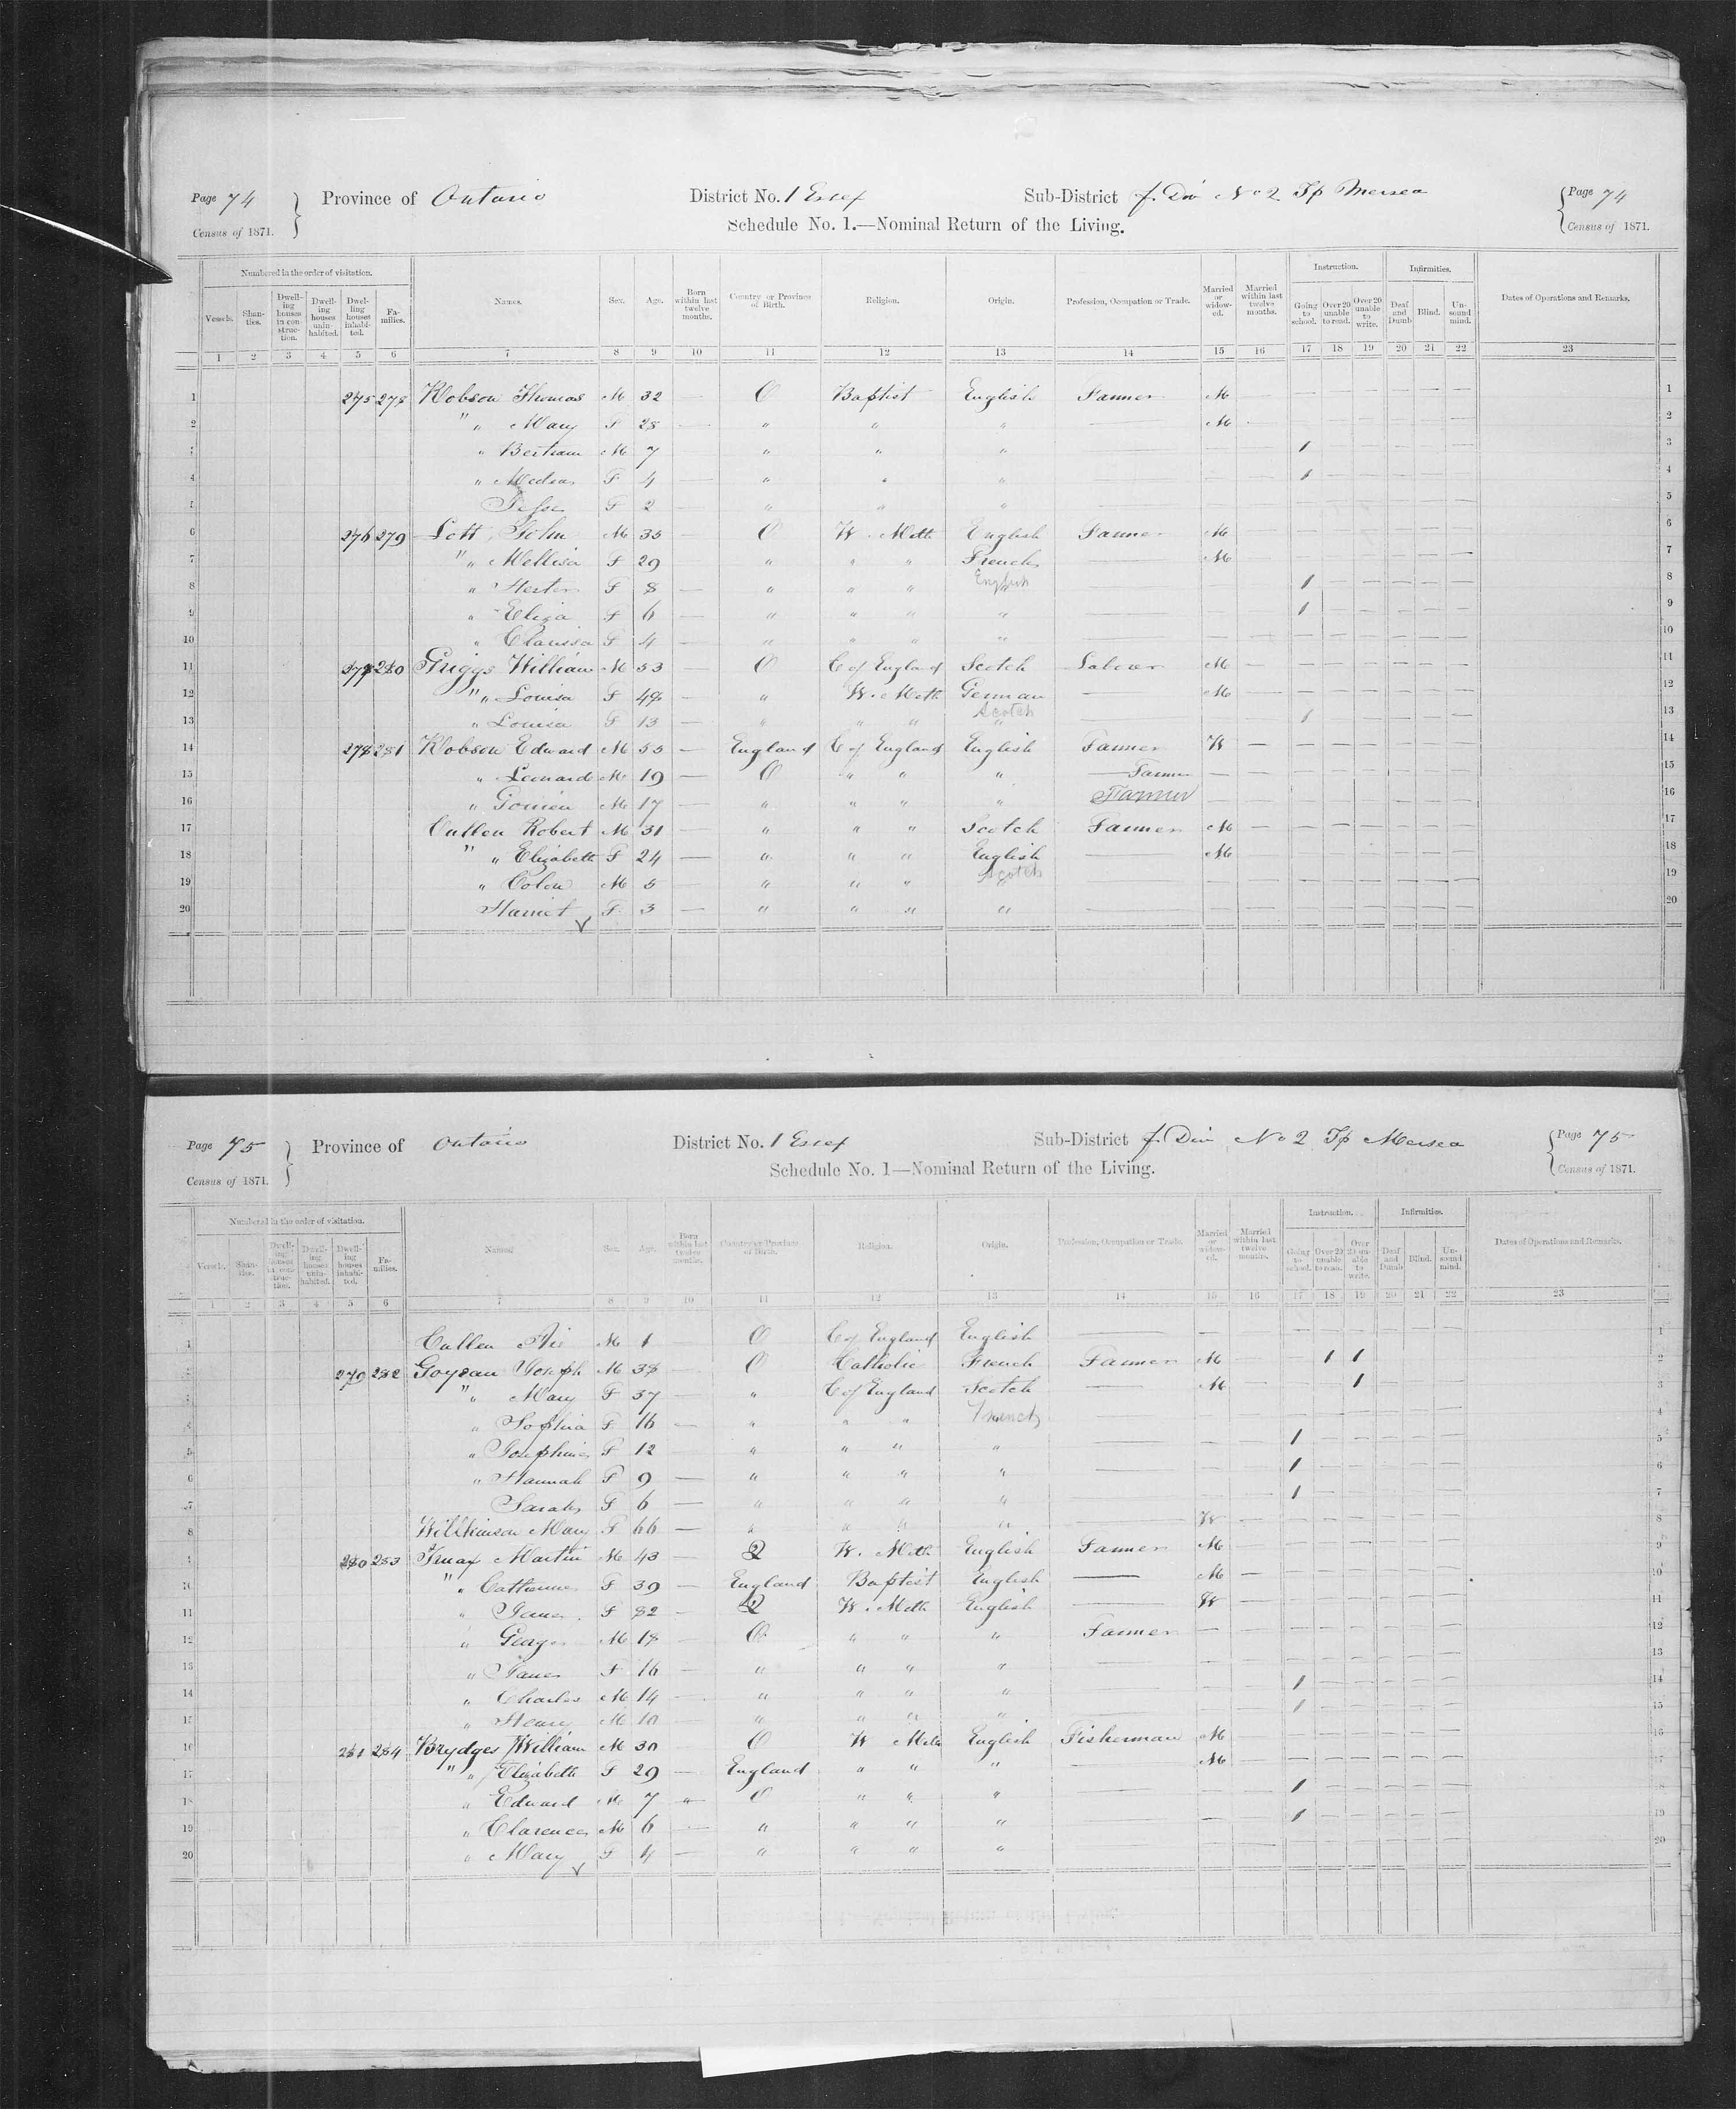 Page 74 Province of Ontario District No. 1 Essex Sub-District f. Div No 2 Tp Mersea Page 74
Census of 1871. Schedule No. 1.—Nominal Return of the Living. Census of 1871.
Numbered in the order of visitation. Instruction. Infirmities.
Vessels. Shanties. Dwelling houses in construction. Dwelling houses uninhabited. Dwelling houses inhabited. Families. Names. Sex. Age. Born within last twelve months. Country or Province of Birth. Religion. Origin. Profession, Occupation or Trade. Married or widowed. Married within last twelve months. Going to school. Over 20 unable to read. Over 20 unable to write. Deaf and Dumb Blind. Unsound mind. Dates of Operations and Remarks.
1 2 3 4 5 6 7 8 9 10 11 12 13 14 15 16 17 18 19 20 21 22 23
1 275 278 Robson Thomas M 32 — O Baptist English Farmer M 1
2 " " Mary F 28 — " " " — M 2
3 " Bertram M 7 " " " — 1 3
4 " F 4 — " " " — 1 4
5 F 2 " " " — 5
6 276 279 Lott John M 35 O W. Meth English Farmer M 6
7 " " Mellisa F 29 " " " French — M 7
8 " Hester F 8 — " " " English — 1 8
9 " Eliza F 6 " " " " — 1 9
10 " Clarissa F 4 — " " " " — 10
11 277 280 Griggs William M 53 — O C of England Scotch Labourer M 11
12 " " Louisa F — " W. Meth German — M 12
13 " Louisa F 13 — " " " Scotch — 1 13
14 278 281 Robson Edward M 55 — England C of England English Farmer W 14
15 " Leonard M 19 — O " " " Farmer 15
16 " M 17 " " " " Farmer 16
17 Cullen Robert M 31 " " " Scotch Farmer M 17
18 " " Elizabeth F 24 — " " " English — M 18
19 " Colon M 5 — " " " Scotch — 19
20 Harriet F 3 — " " " " — 20
Page 75 Province of Ontario District No. 1 Essex Sub-District f. Div No 2 Tp Mersea Page 75
Census of 1871. Schedule No. 1—Nominal Return of the Living. Census of 1871.
Numbered in the order of visitation. Instruction. Infirmities.
Vessels. Shanties. Dwelling houses in construction. Dwelling houses uninhabited. Dwelling houses inhabited. Families. Names Sex. Age. Born within last twelve months. Country or Province of Birth. Religion. Origin. Profession, Occupation or Trade. Married or widowed. Married within last twelve months. Going to school. Over 20 unable to read. Over 20 unable to write. Deaf and Dumb Blind. Unsound mind. Dates of Operations and Remarks.
1 2 3 4 5 6 7 8 9 10 11 12 13 14 15 16 17 18 19 20 21 22 23
1 Cullen M 1 O C of England English — 1
2 279 282 Joseph M 38 — O Catholic French Farmer M 1 1 2
3 " " Mary F 37 " C of England Scotch — M 1 3
4 " Sophia F 16 — " " " French — 4
5 " Josephine F 12 " " " " — 1 5
6 " Hannah F 9 — " " " " — 1 6
7 Sarah F 6 — " " " " — 1 7
8 Willkinson Mary F 66 — " " " " W 8
9 280 283 Martin M 43 — Q W. Meth English Farmer M 9
10 " " Catherine F 39 — England Baptist English — M 10
11 " F 82 Q W. Meth English — W 11
12 " George M 18 O " " " Farmer 12
13 " Jane F 16 " " " " — 13
14 " Charles M 14 — " " " " — 1 14
15 " Henry M 10 — " " " 1 15
16 281 284 Brydges William M 30 O W Meth English Fisherman M 16
17 " " Elizabeth F 29 — England " " " — M 17
18 " Edward M 7 O " " " — 1 18
19 " Clarence M 6 " " " " — 1 19
20 " Mary F 4 — " " " " — 20